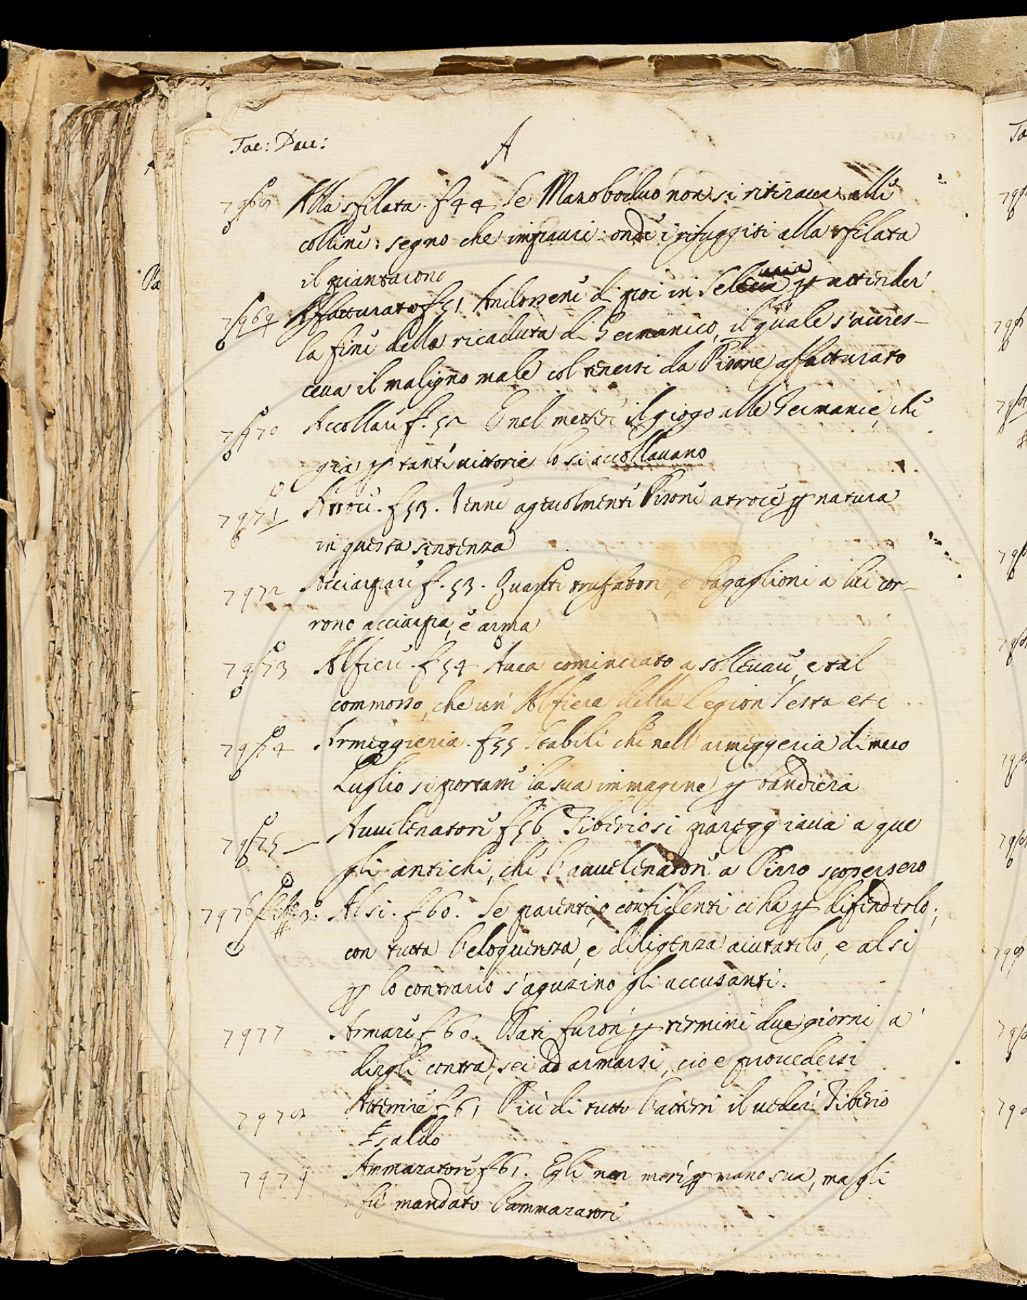 Tac: Dau:
A
7968 Alla sfilata. f 44 Se Maroboduo non si ritiraua alli
collini; segno che impauri: onde i rifuggiti alla sfilata
il piantarono
7969 Affatturato f 51 Andossene di poi in Seleucia per attender
la fine della ricaduta di Germanico, il quale s'acres-
ceua il maligno male col tenersi da Pisone affatturato
7970 Accollare f. 52 E nel metter il giogo alle Germanie, che
gia per tante uittorie lo si accollauano
7971 Atroce. f 53. Venne ageuolmente Pisone atroce per natura
in questa sentenza
7972 Acciarpare f. 53. Quanti truffatori, e bagaglioni a lui cor-
rono acciarpa, e arma
7973 Alfiere. f 54 Auea cominciato a solleuare, e tal
commosso, che un' Alfiere della Legion Sesta etc
7974 Armeggieria. f 55 Stabilì che nell' armeggeria di mezo
Luglio si portasse la sua immagine per bandiera
7975 Auuelenatore f 56 Tiberio si pareggiaua a que
gli antichi, che l'auuelenatore a Pirro scopersero
7976 Alsi. f 60. Se parenti, o confidenti ci ha per difenderlo;
con tutta l'eloquenza, e diligenza aiutatelo, e alsi
per lo contrario s'aguzino gli accusanti.
7977 Armare f 60. Dati furon per termine due giorni a
dirgli contra, sei ad armarsi, cioè prouedersi
7978 Atterrire f 61 Più di tutto l'atterrì il ueder Tiberio
saldo
7979 Ammazatore f 61. Egli non morì per mano sua, ma gli
fù mandato l'ammazatore